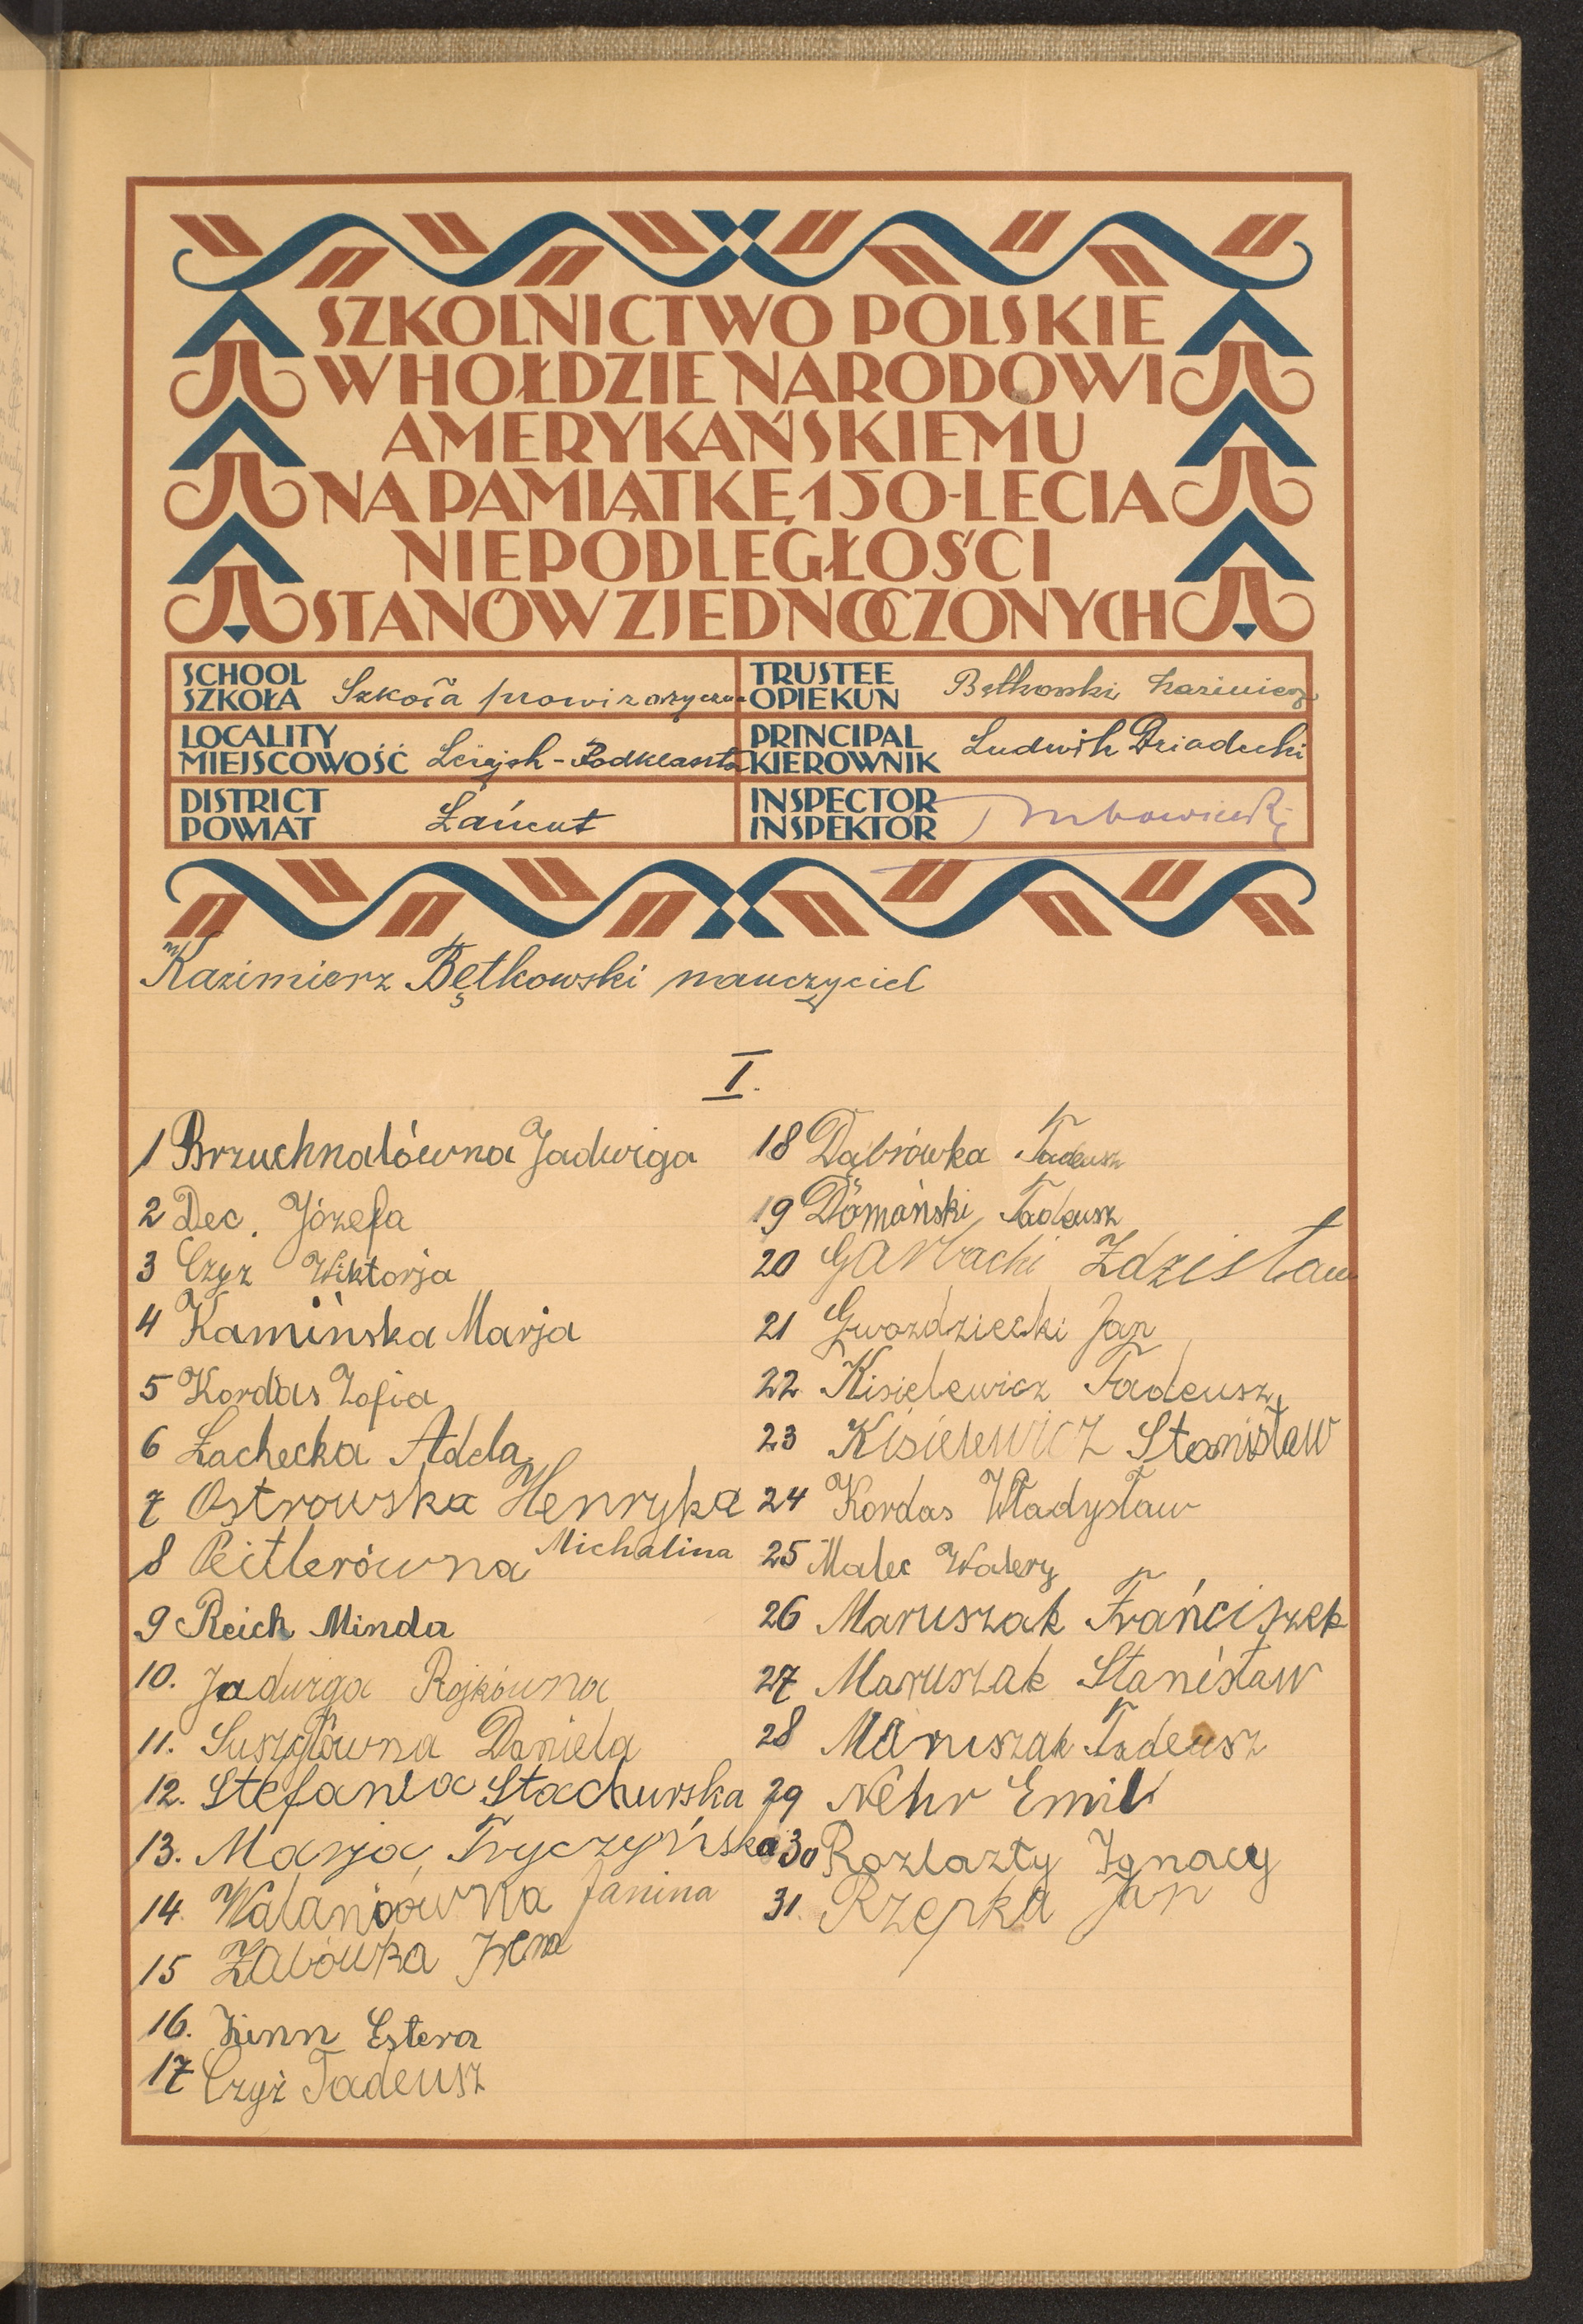 SZKOLNICTWO POLSKIE
W HOŁDZIE NARODOWI
AMERYKAŃSKIEMU
NA PAMIĄTKĘ 150-LECIA
NIEPODLEGŁOŚCI
STANÓW ZJEDNOCZONYCH
SCHOOL
SZKOŁA Szkoła prowizoryczna
TRUSTEE
OPIEKUN Bętkowski Kazimierz
LOCALITY
MIEJSCOWOŚĆ Leżajsk - Podklasztor
PRINCIPAL
KIEROWNIK Ludwik Dziadecki
DISTRICT
POWIAT Łańcut
INSPECTOR
INSPEKTOR
Kazimierz Bętkowski nauczyciel
I.
1 Brzuchnalówna Jadwiga
2 Dec. Józefa
3 Czyz Wiktorja
4 Kamińska Marja
5 Kordas Zofia
6 Łachecka Adela
7 Ostrowska Henryka
8 Peitlerówna Michalina
9 Reich Minda
10. Jadwiga Rojkówna
11. Suszyłówna Daniela
12. Stefania Stachurska
13. Marja Tryczyńska
14. Walaniówna Janina
15 Żabówka Irena
16. Zinn Estera
17 Czyż Tadeusz
18 Dąbrówka Tadeusz
19 Domański Tadeusz
20 Garbacki Zdzisław
21 Gwozdziecki Jan
22 Kisielewicz Tadeusz
23 Kisielewicz Stanisław
24 Kordas Władysław
25 Malec Walery
26 Maruszak Frańciszek
27 Maruszak Stanisław
28 Maruszak Tadeusz
29 Nehr Emil
30 Rozlazty Ignacy
31. Rzepka Jan